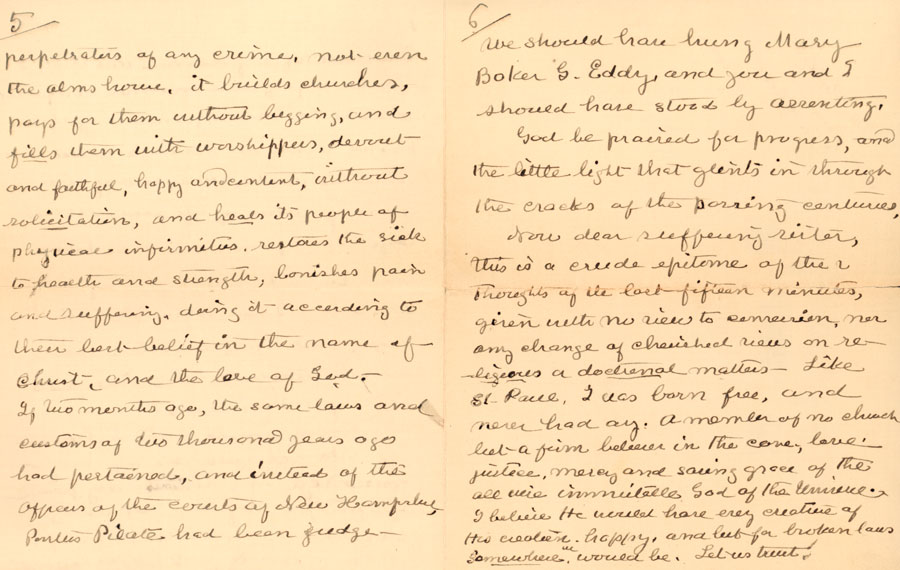 5
perpetrators of any crime, not even
the alms house. it builds churches,
pays for them without begging, and
fills them with worshippers, devout
and faithful, happy and content, without
solicitation, and heals its people of
physical infirmities. restores the sick
to health and strength, banishes pain
and suffering. doing it according to
their best belief in the name of
Christ, and the love of God.
If two months ago, the same laws and
customs of two thousand years ago
had pertained, and instead of the
officers of the courts of New Hampshire,
Pontius Pilate had been judge
6
We should have hung Mary
Baker G. Eddy, and you and I
should have stood by assenting.
God be praised for progress, and
the little light that glints in through
the cracks of the passing centuries,
Now dear suffering sister,
this is a crude epitome of the
thoughts of the last fifteen minutes,
given with no view to conversion, nor
any change of cherished views on re-
ligious or doctrinal matters - Like
St. Paul, I was born free, and
never had any. A member of no church
but a firm believer in the care, love
justice, mercy and saving grace of the
all wise immutable God of the Universe.
I believe He would have every creature of
His creation happy, and but for broken laws
somewhere, would be. Let us trust.